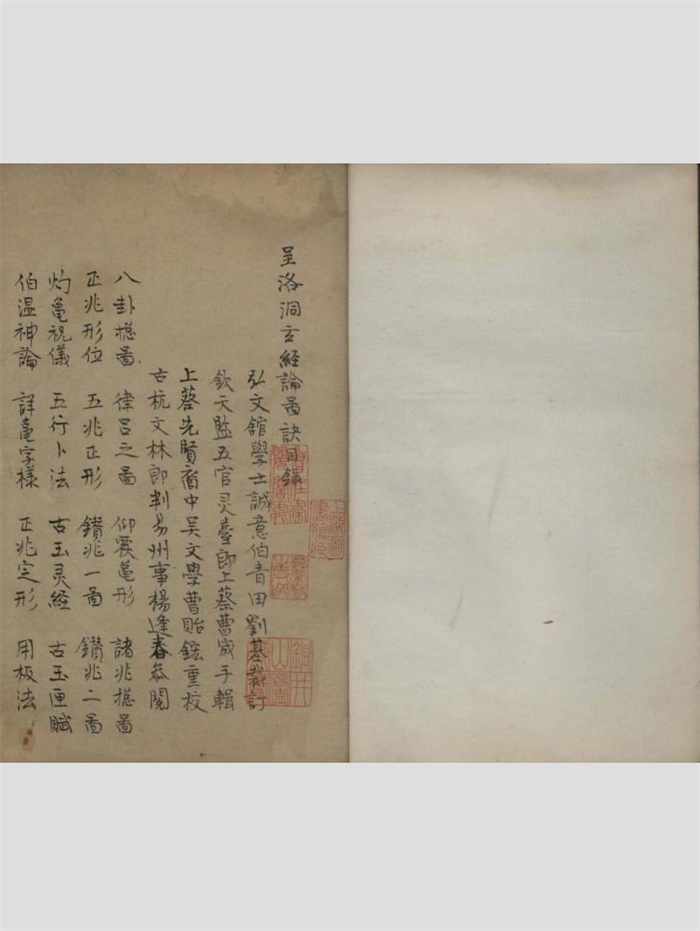 呈洛洞玄經論畐訣目錄
弘文舘學士誠意伯青田劉基裁訂
欽天監五官灵臺郎上蔡曹宬手輯
上蔡先賢裔中吴文學曹貽鋐重校
古杭文林郎判易州事楊逢春叅閱
八卦揔畐 律呂之畐 仰震亀形 諸兆揔畐
正兆形位 五兆正形 鑽兆一畐 鑽兆二畐
灼亀祝儀 五行卜法 古玉灵經 古玉匣賦
伯温神論 詳亀字樣 正兆定形 用板法